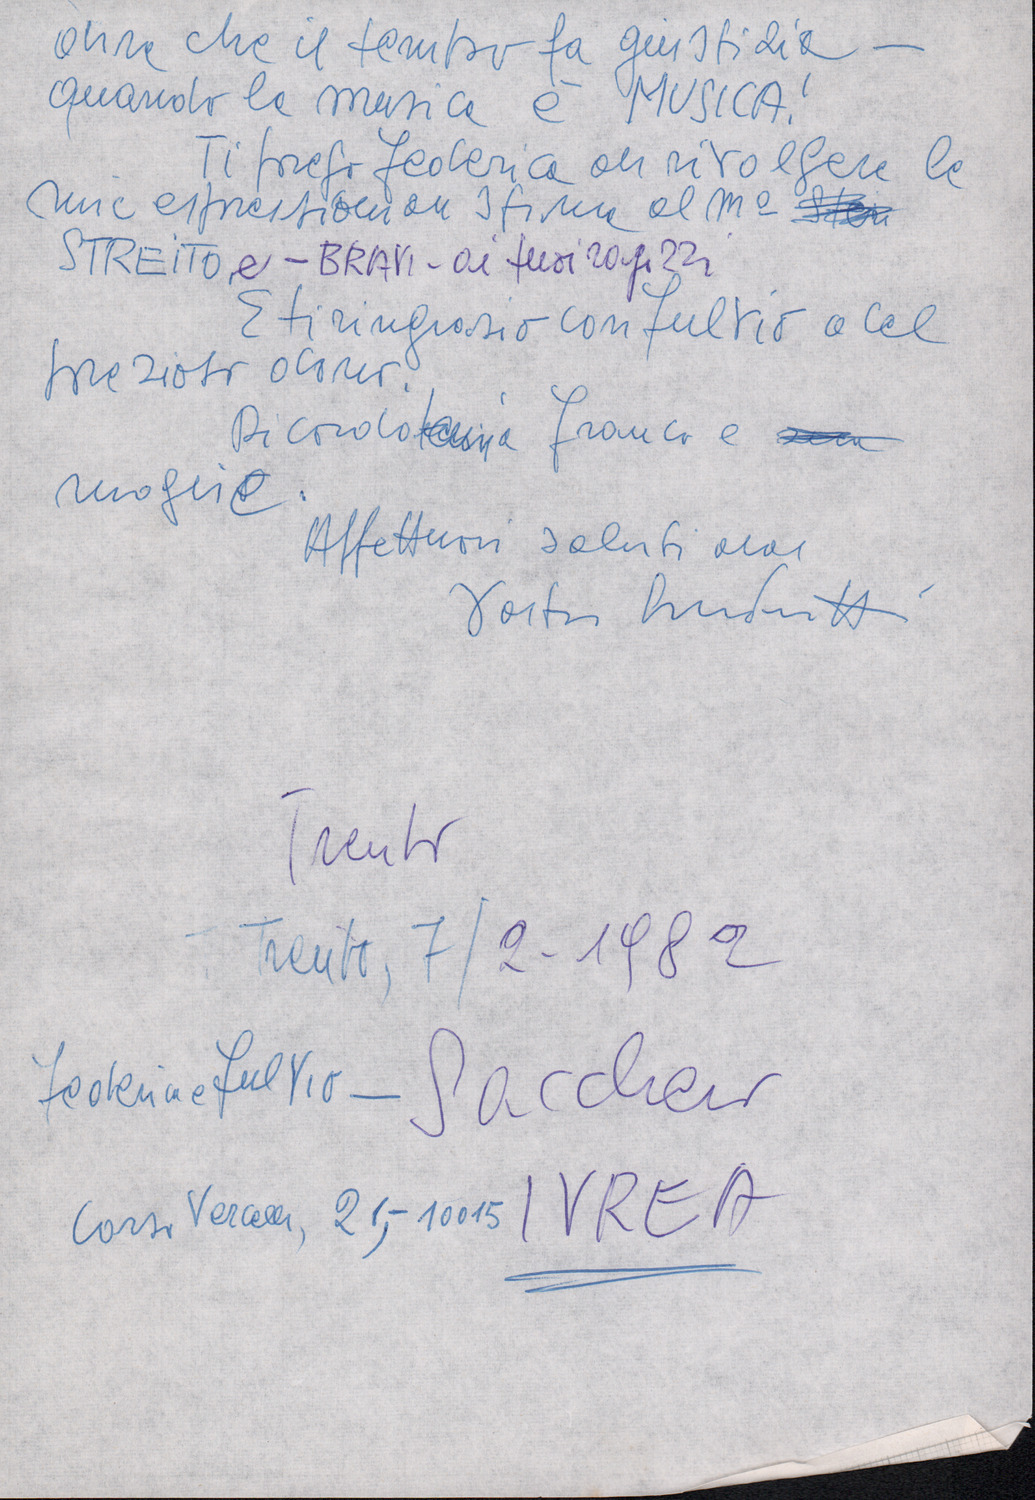 dire che il tempo fa giustizia —
quando la musica è MUSICA!
Ti prego Federica di rivolgere le
mie espressioni di stima al Mº
STREITO e - BRAVI - ai tuoi ragazzi
E ti ringrazio con Fulvio del
prezioso dono.
Ricordo Franco e
moglie.
Affettuosi saluti dal
Vostro
Trento
Trento, 7/2-1982
Federica e Fulvio —
Corso Vercelli, 21,- 10015 IVREA